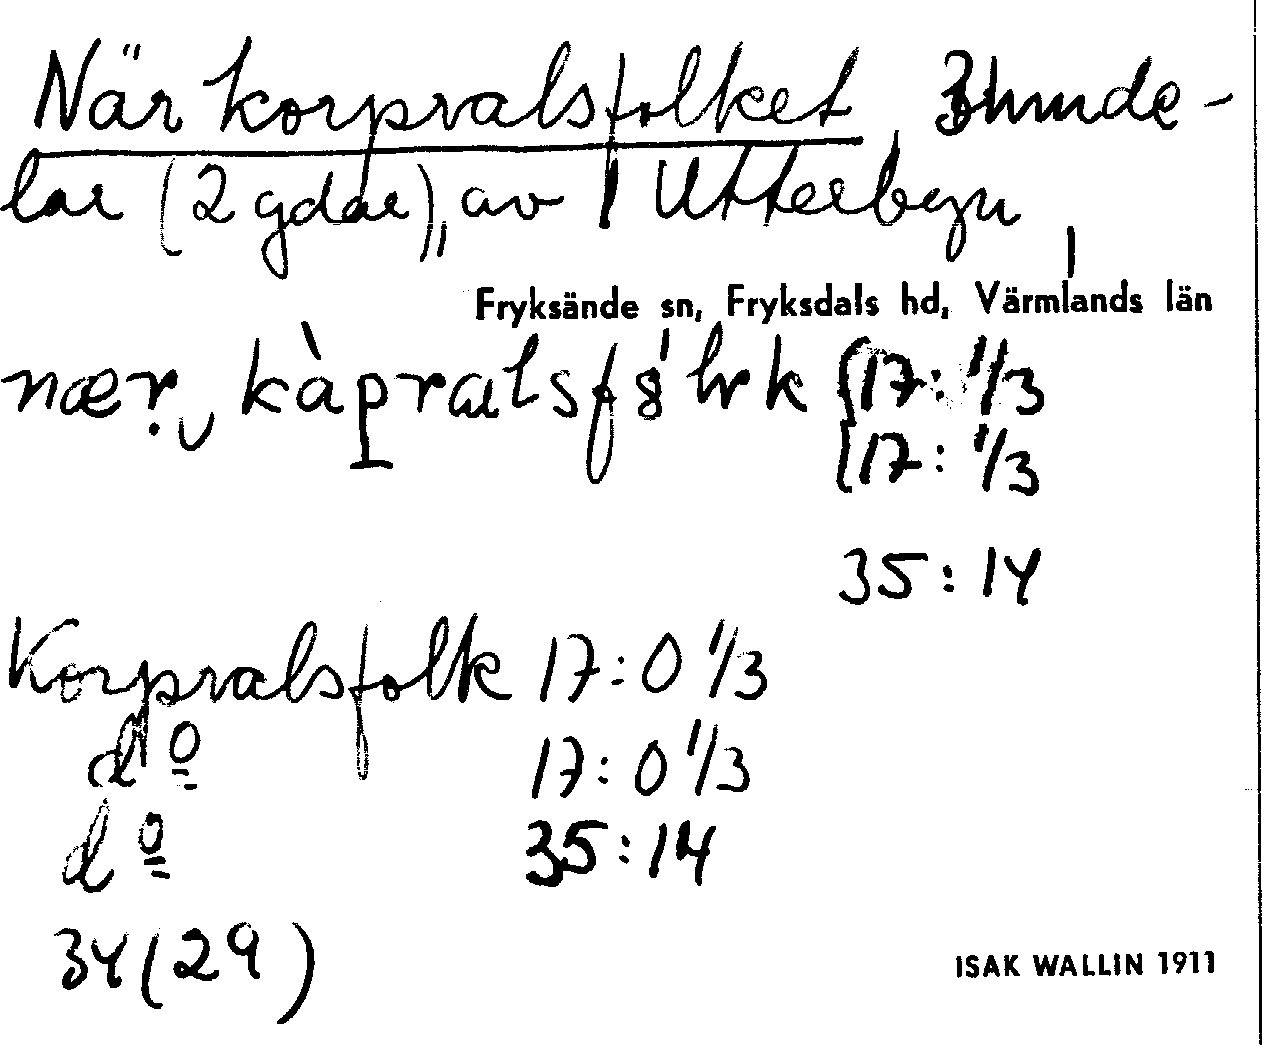 När korpralsfolket 3 hmde-
lar (2 gdar), av Utterbyn
Fryksände sn, Fryksdals hd, Värmlands län
nær kàpralsf 17: 1/3
17: 1/3
35:14
Korpralsfolk 17:0 1/3
dº 17:0 1/3
dº 35:14
34 (29)
ISAK WALLIN 1911